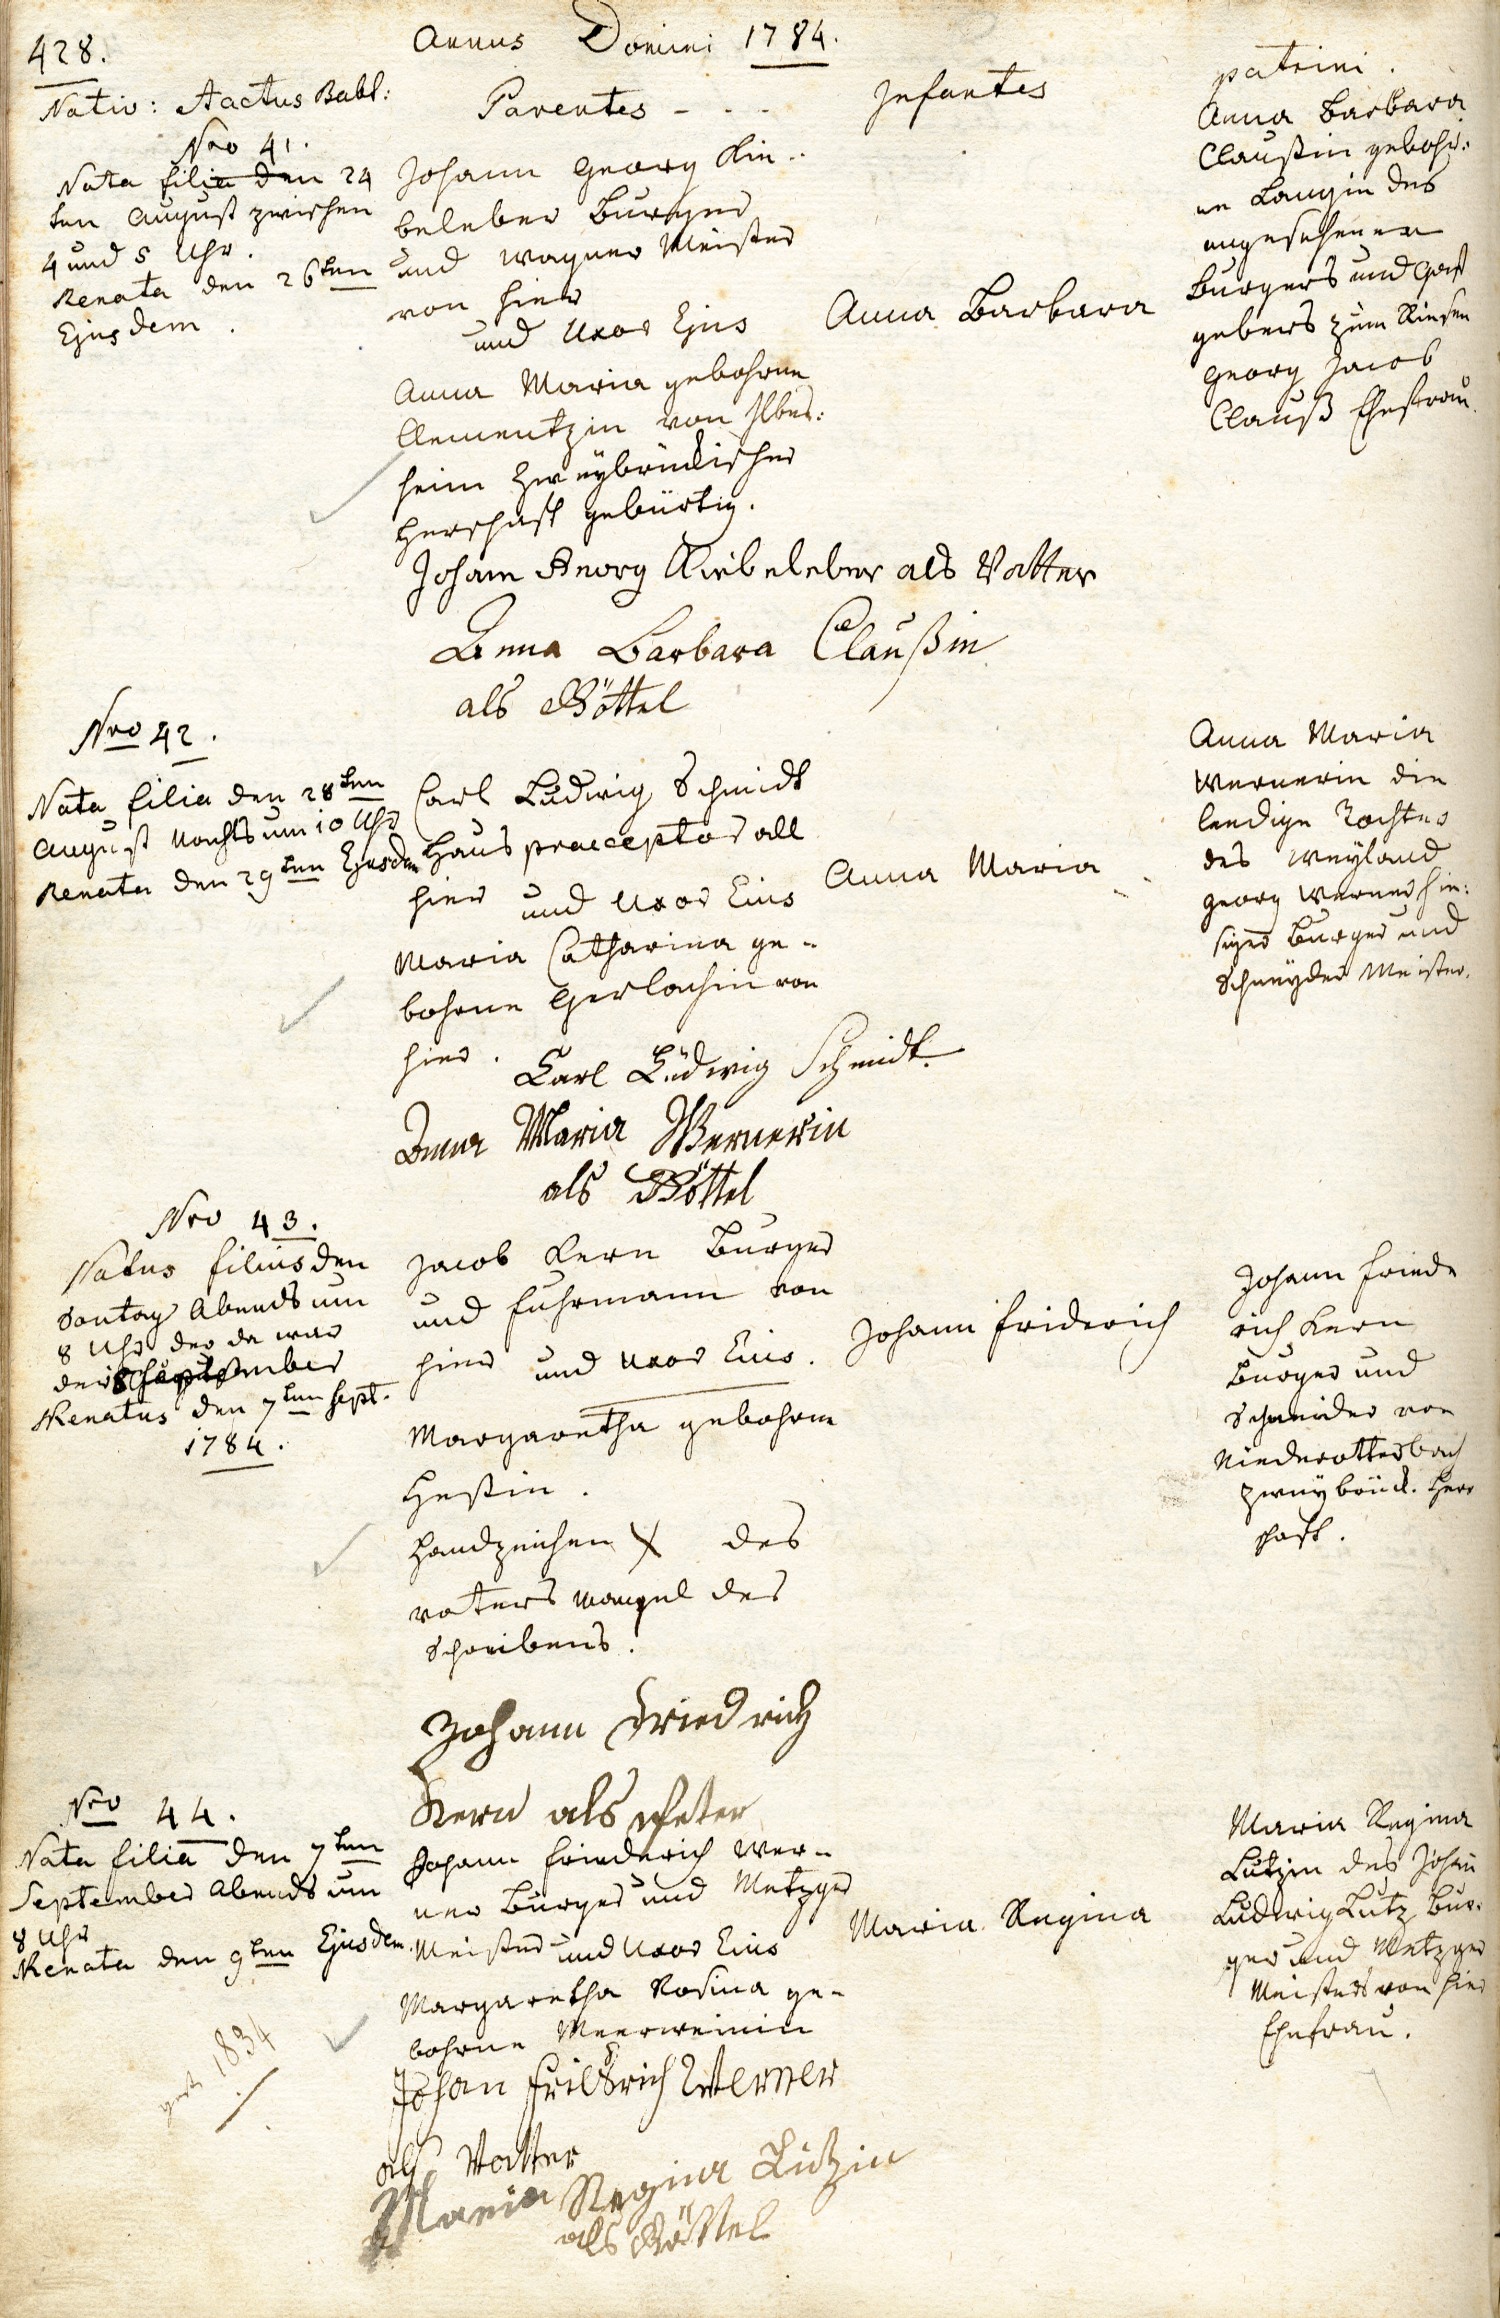 428.
Annus Domini 1784.
Nativ: Aactus Babt:
Parentes - - -
Infantes
patrini.
Nro 41.
Nata filia den 24
ten August zwischen
4 und 5 Uhr.
Renata den 26ten
Ejusdem.
Johann Georg Kie-
beleber Burger
und Wagner Meister
von hier
und Uxor Ejus
Anna Maria gebohrne
Clementzin von Ilbes:
heim Zweybrückischer
Herschaft gebürtig.
Anna Barbara
Anna Barbara
Claußin gebohr:
ne Langin des
angesehenen
Burgers und Gast
gebers zum Riesen
Georg Jacob
Clauß Ehefrau.
Joham Georg Kiebeleber als Vatter
Anna Barbara Claußin
als Göttel
Nro 42.
Nata filia den 28ten
August Nachts um 10 Uhr
Renata den 29ten Ejusdem
Carl Ludwig Schmidt
Haus praeceptor all
hier und Uxor Eius
Maria Catharina ge-
bohrne Gerlachin von
hier.
Anna Maria
Anna Maria
Wernerin die
leedige Tochter
des weyland
Georg Werner hie:
siger Burger und
Schneyder Meister.
Carl Ludwig Schmidt
Anna Maria Wernerin
als Göttel
Nro 43.
Natus filius den
Sontag Abends um
8 Uhr der da war
der September
Renatus den 7ten Sept.
1784.
Jacob Kern Burger
und Fuhrmann von
hier und Uxor Eius.
Margaretha gebohrne
Heßin.
Handzeichen X des
vaters mangel des
Schreibens.
Johann Friderich
Johann Friede
rich Kern
Burger und
Schneider von
Niederotterbach
Zweybrück. Herr
schaft.
Johann Friedrich
Kern als Peter
Nro 44.
Nata filia den 7ten
September Abends um
8 Uhr
Renata den 9ten Ejusdem.
Johann Friederich Wer-
ner Burger und Metzger
Meister und Uxor Eius
Margaretha Rosina ge-
bohrne Meerweinin
Maria Regina
Maria Regina
Lutzin des Johan
Ludwig Lutz Bur:
ger und Metzger
Meisters von hier
Ehefrau.
1834
Johan Fridrich Werner
als Vatter
Maria Regina Lutzin
als Göttel